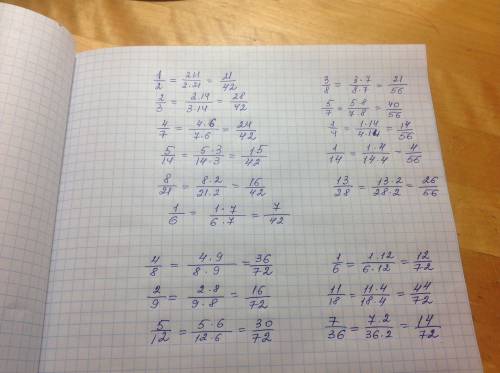 1/2 = 2·1/2·21 = 21/42
2/3 = 2·14/3·14 = 28/42
4/7 = 4·6/7·6 = 24/42
5/14 = 5·3/14·3 = 15/42
8/21 = 8·2/21·2 = 16/42
1/6 = 1·7/6·7 = 7/42
3/8 = 3·7/8·7 = 21/56
5/7 = 5·8/7·8 = 40/56
1/4 = 1·14/4·14 = 14/56
1/14 = 1·4/14·4 = 4/56
13/28 = 13·2/28·2 = 26/56
4/8 = 4·9/8·9 = 36/72
2/9 = 2·8/9·8 = 16/72
5/12 = 5·6/12·6 = 30/72
1/6 = 1·12/6·12 = 12/72
11/18 = 11·4/18·4 = 44/72
7/36 = 7·2/36·2 = 14/72